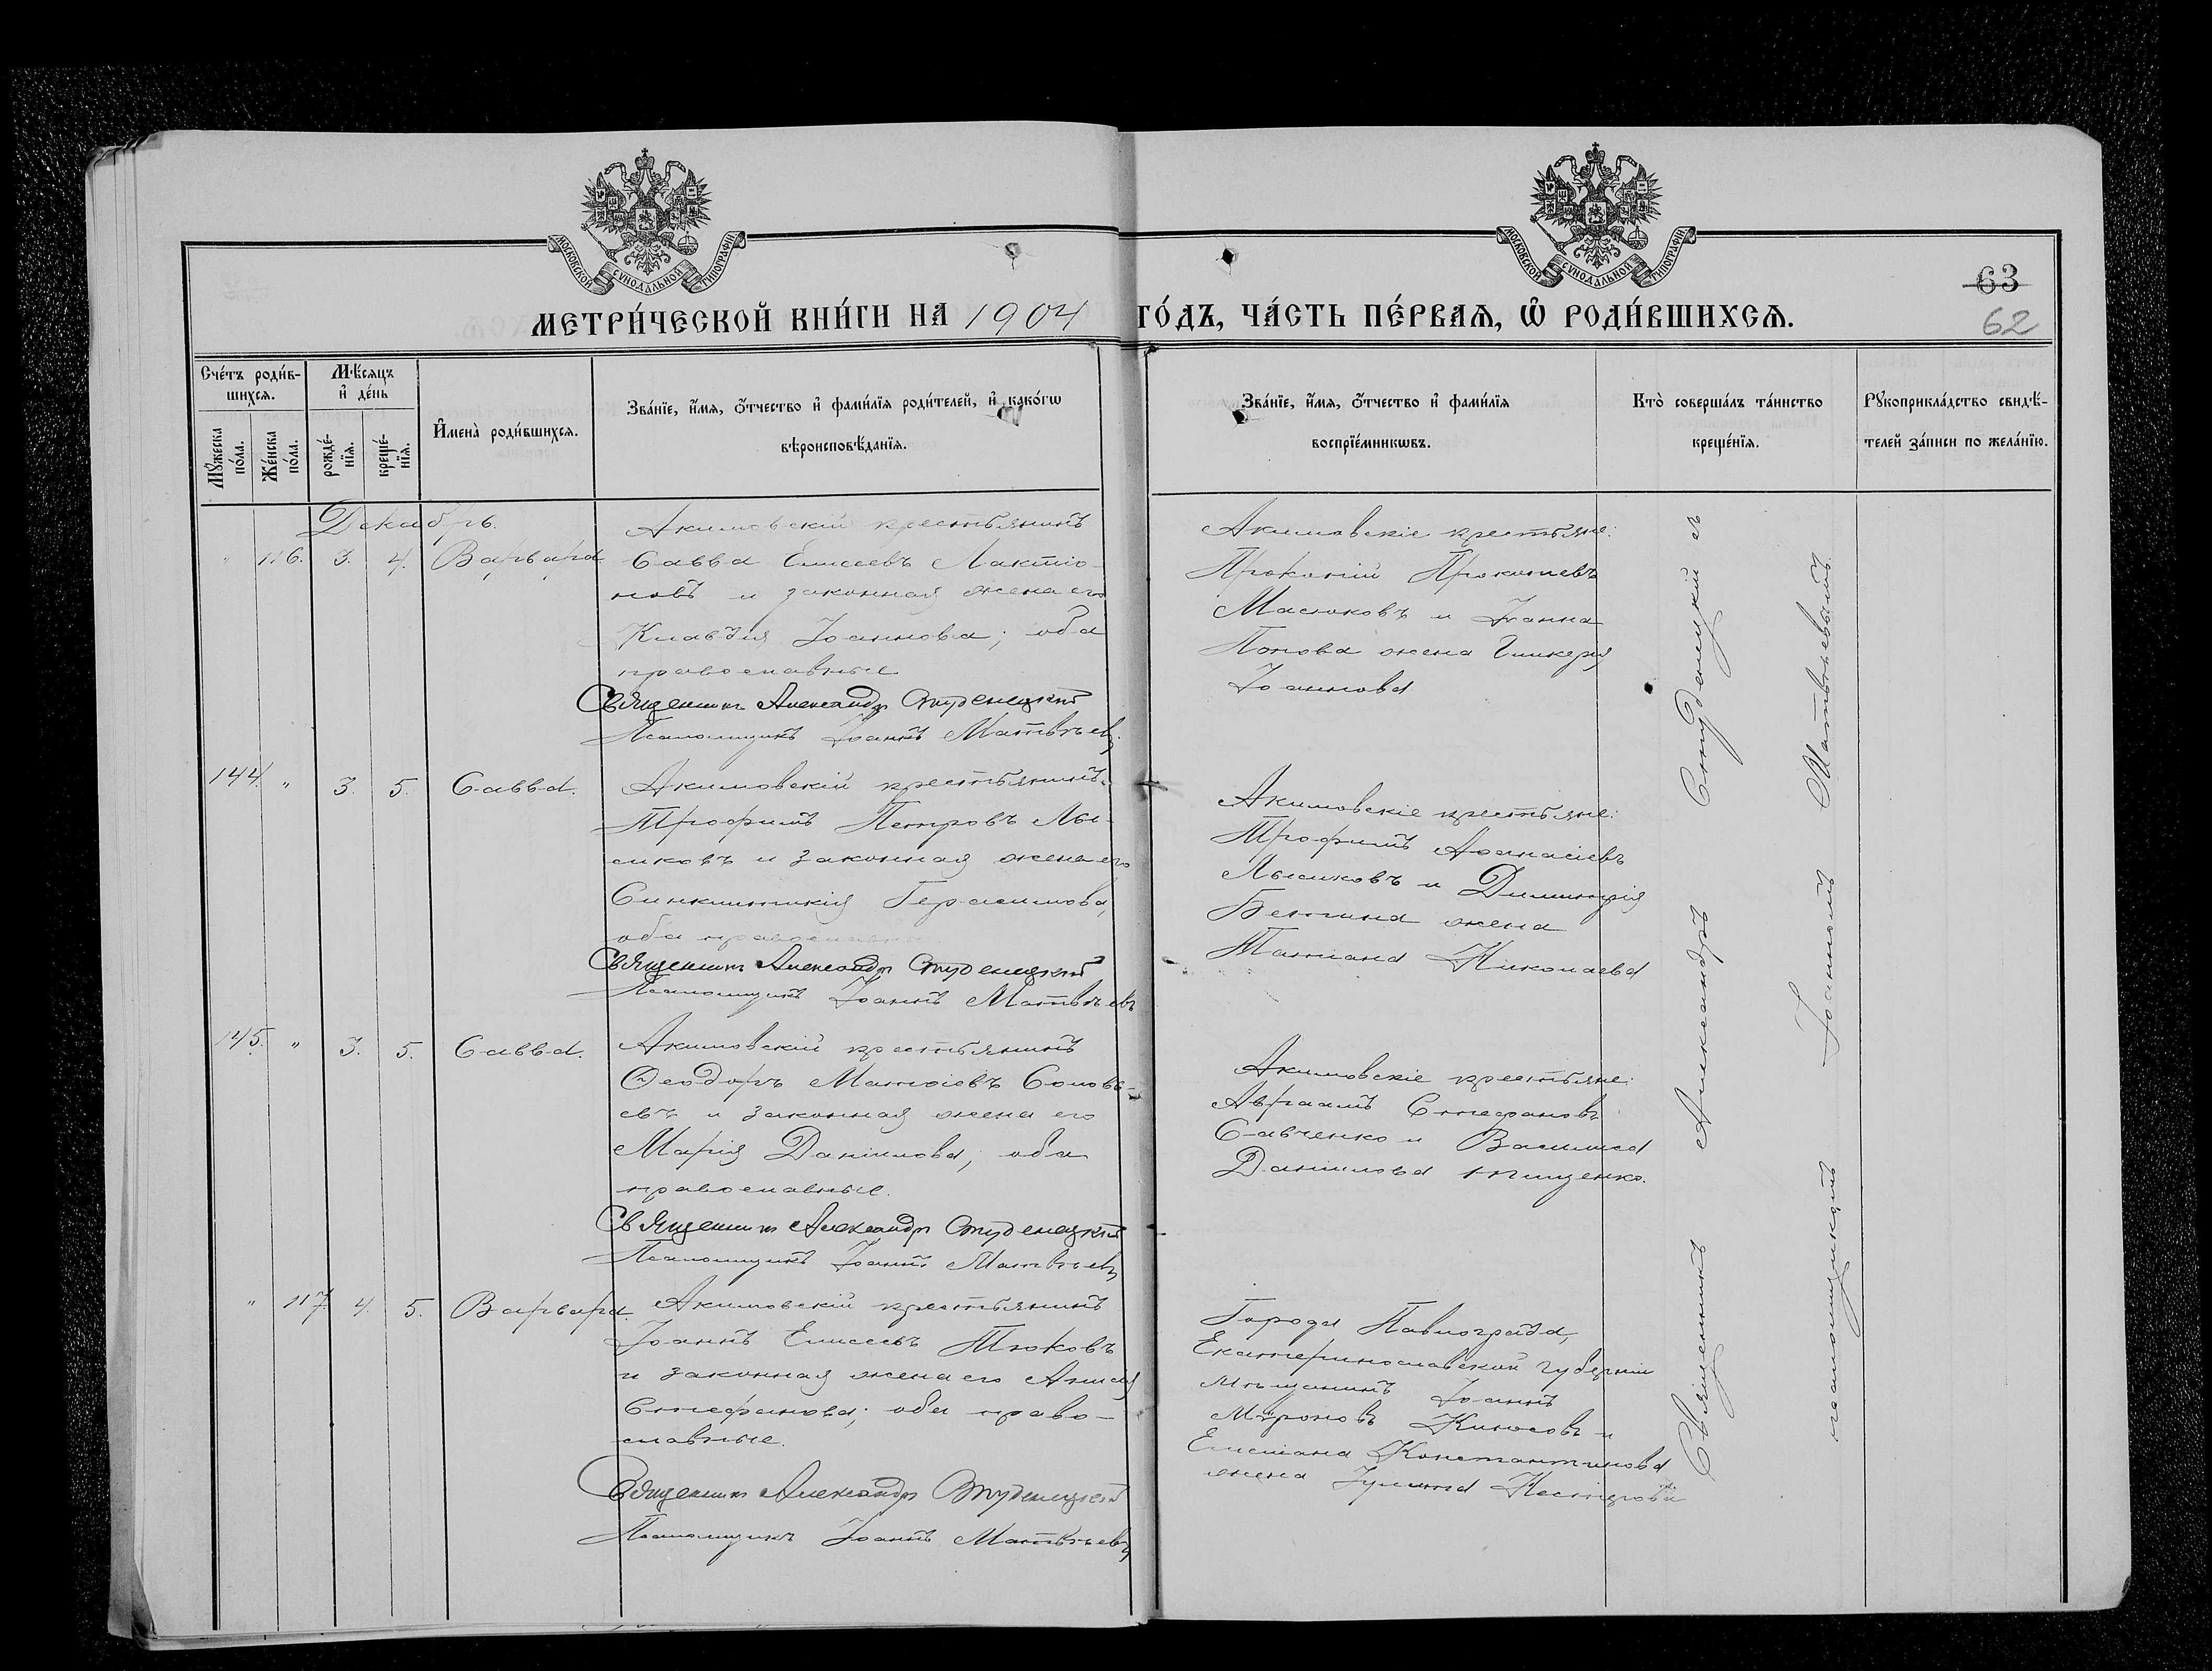 МОСКОВСКОЙ СѴНОДАЛЬНОЙ ТИПОГРАФІИ
МОСКОВСКОЙ СѴНОДАЛЬНОЙ ТИПОГРАФІИ
МЕТРИ́ЧЕСКОЙ КНИ́ГИ НА 1904 ГО́ДЪ, ЧА́СТЬ ПЕ́РВАѦ, Ѡ҆ РОДИ́ВШИХСѦ.
63
62
Сче́тъ роди́в-
шихсѧ.
Мꙋ́жеска по́ла.
Же́нска по́ла.
Мѣ́сѧцъ
и҆ де́нь
рожде́-
нїѧ.
креще́-
нїѧ.
И҆мена̀ роди́вшихсѧ.
Зва́нїе, и҆́мѧ, ѻ҆́тчество и҆ фами́лїѧ роди́телей, и҆ како́гѡ
вѣроисповѣ́данїѧ.
Зва́нїе, и҆́мѧ, ѻ҆́тчество и҆ фами́лїѧ
воспрїе́мникѡвъ.
Кто̀ соверша́лъ та́инство
креще́нїѧ.
Рꙋкоприкла́дство свидѣ́-
телей за́писи по жела́нїю.
Декабрь.
" 116. 3. 4. Варвара
Акимовскій крестьянинъ
Савва Елисеевъ Лактіо-
новъ и законная жена его
Клавдія Іоаннова; оба
православные
Священникъ Александръ Студенецкій
Псаломщикъ Іоаннъ Матвѣевъ
Акимовскіе крестьяне:
Прокопій Прокопіевъ
Масюковъ и Іоанна
Попова жена Гликерія
Іоаннова
144. " 3. 5. Савва.
Акимовскій крестьянинъ
Трофимъ Петровъ Лы-
сиковъ и законная жена его
Синклитикія Герасимова,
оба православные
Священникъ Александръ Студенецкій
Псаломщикъ Іоаннъ Матвѣевъ
Акимовскіе крестьяне:
Трофимъ Аѳанасіевъ
Лысиковъ и Димитрія
жена
Татіана Николаева
145. " 3. 5. Савва.
Акимовскій крестьянинъ
Ѳеодоръ Матѳіевъ Соловь-
евъ и законная жена его
Марія Даніилова; оба
православные.
Священникъ Александръ Студенецкій
Псаломщикъ Іоаннъ Матвѣевъ
Акимовскіе крестьяне:
Авраамъ Стефановъ
Савченко и Василиса
Даніилова Тищенко.
" 117. 4. 5. Варвара.
Акимовскій крестьянинъ
Іоаннъ Елисеевъ Тюковъ
и законная жена его Анисія
Стефанова; оба право-
славные.
Священникъ Александръ Студенецкій
Псаломщикъ Іоаннъ Матвѣевъ
Города Павлограда,
Екатеринославской губерніи
мѣщанинъ Іоаннъ
Мѵроновъ и
Константинова
жена Іулитта Несторова
Священникъ Александръ Студенецкій съ
псаломщикомъ Іоанномъ Матвѣевымъ.